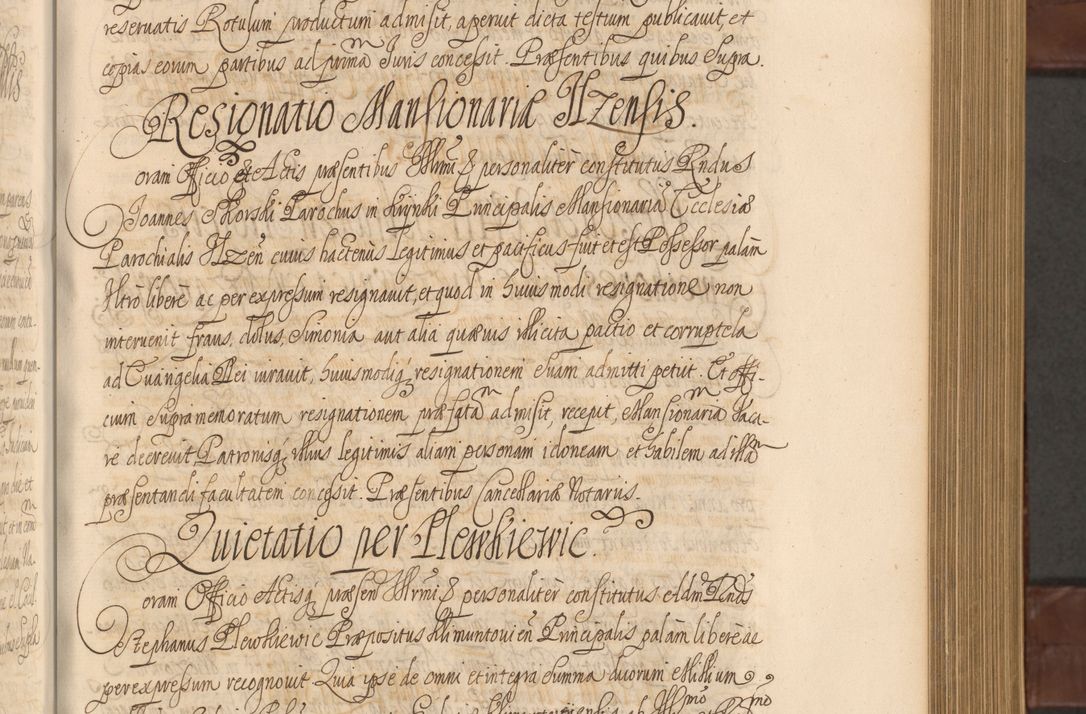 reservatis Rotulum productum admisit, aperuit dicta testium publicavit, et
copias eorum partibus ad prima Juris concessit. Præsentibus quibus Supra.
Resignatio Mansionariæ Ilzensis.
Coram Officio et Actis præsentibus personaliter constitutus Rndus
Joannes Skorski Parochus in Principalis Mansionaria Ecclesiæ
Parochialis Ilzen cuius hactenus legitimus et pacificus fuit et est Possessor palam
Ultrò liberè ac per expressum resignavit, et quod in huiusmodi resignatione non
intervenit fraus, dolus, Simonia aut alia quævis illicita pactio et corruptela
ad Evangelia Dei iuravit, huiusmodiq resignationem etiam admitti petiit. Et offi-
cium supra memoratum resignationem præfatam admisit, recepit, Mansionariam Vaca-
re decrevit Patronisq illius legitimis aliam personam idoneam et habilem ad illam
præsentandi facultatem concessit. Præsentibus Cancellariæ Notariis.
Quietatio per Plewkiewic.
Coram Officio Actisq præsen personaliter constitutus Adm Rnds
Stephanus Plewkiewic Præpositus Klimuntovien Principalis palam liberè ac
per expressum recognovit Quia ipse de omni et integra Summa duorum Millium